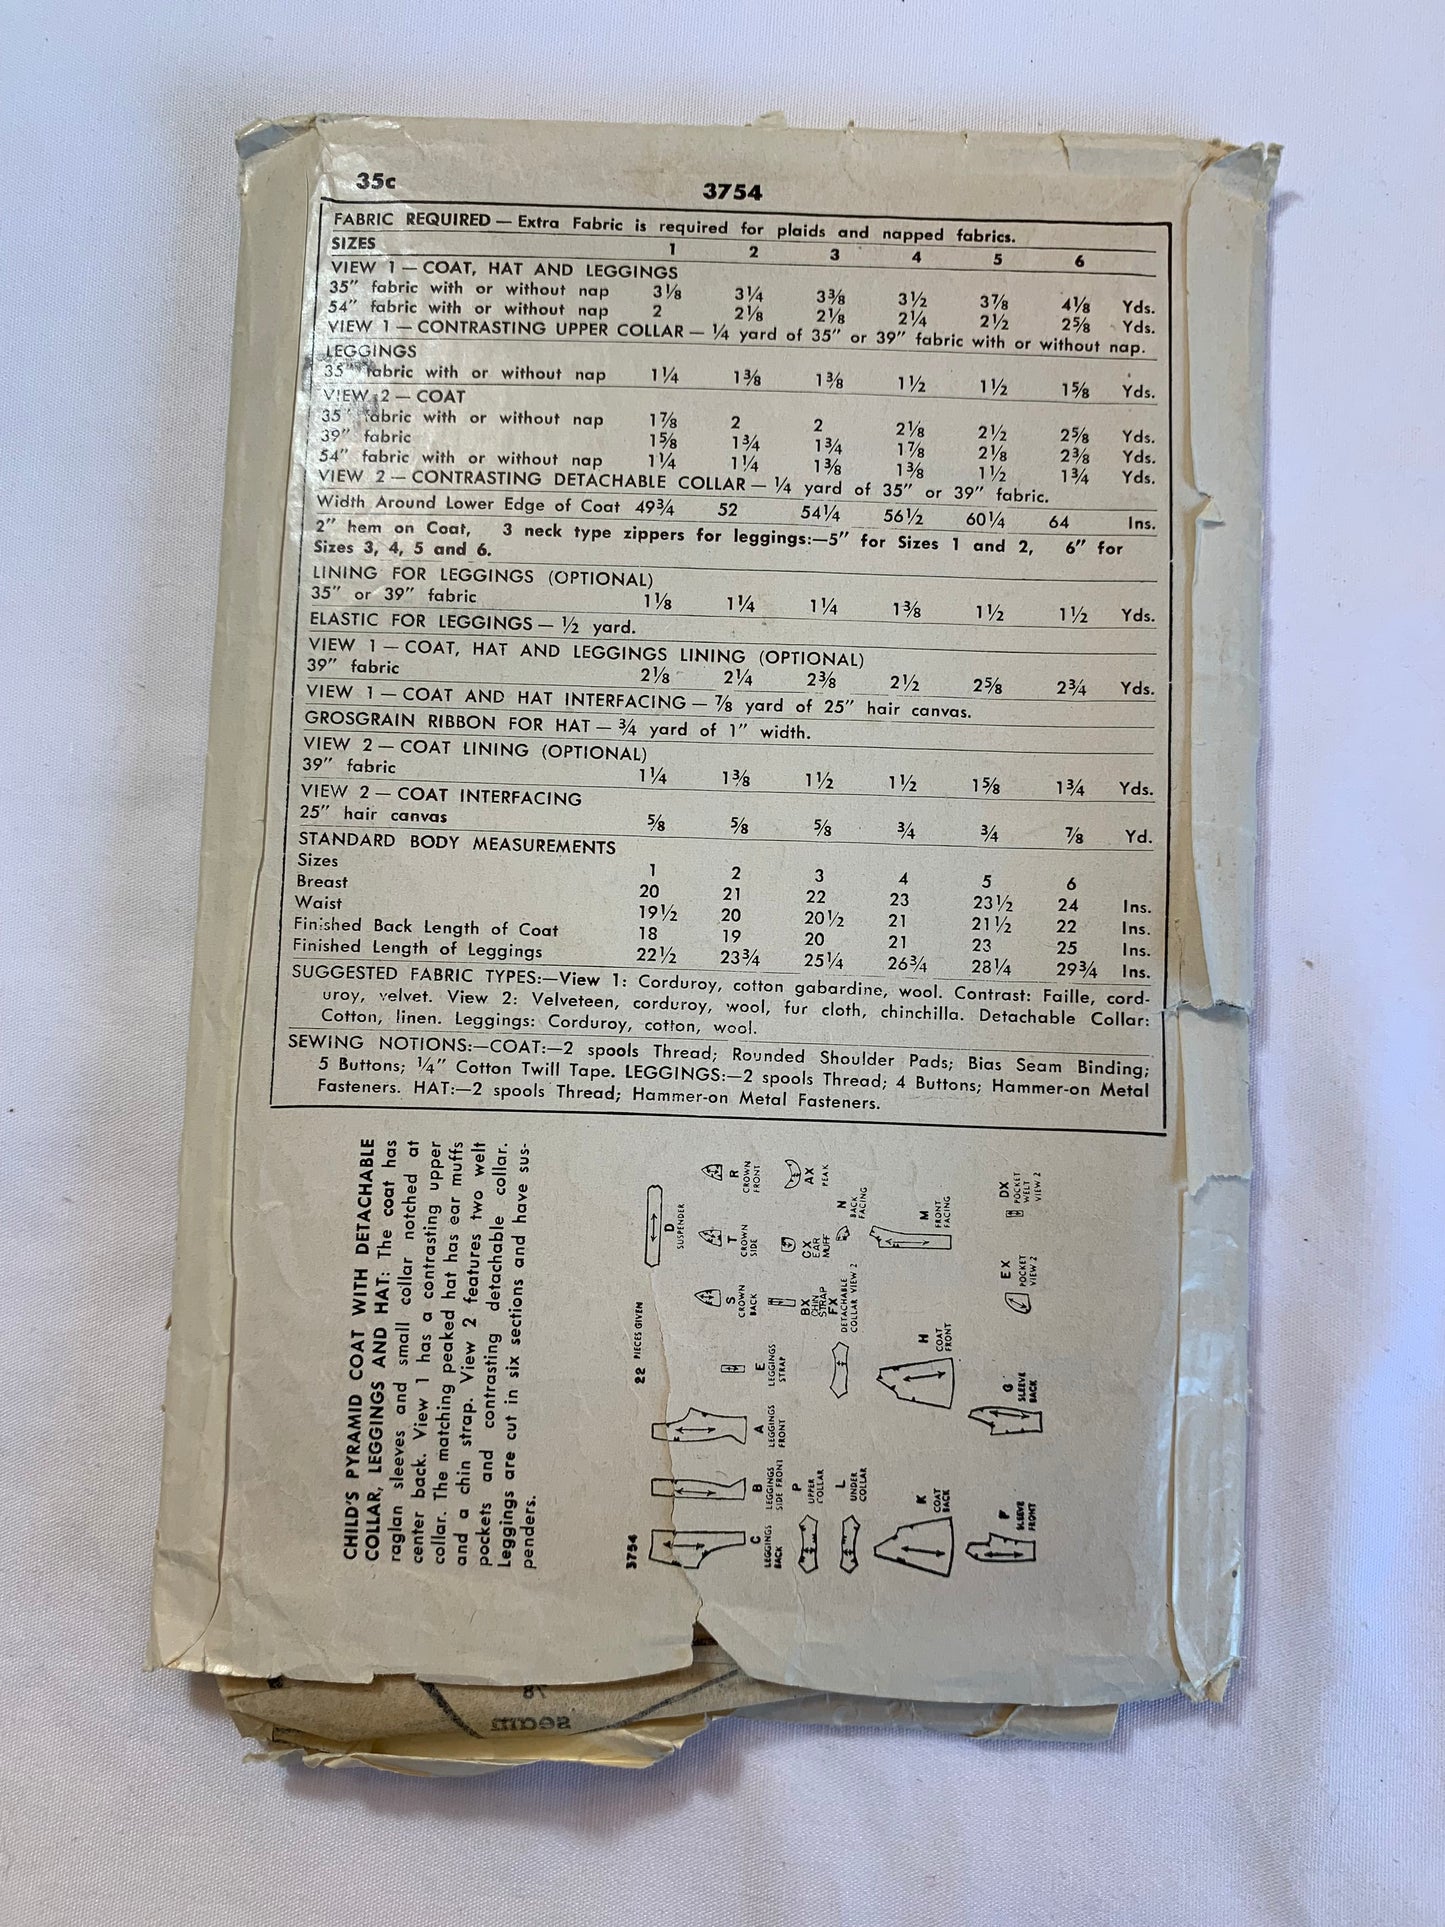 35c
3754
FABRIC REQUIRED — Extra Fabric is required for plaids and napped fabrics.
SIZES 1 2 3 4 5 6
VIEW 1 — COAT, HAT AND LEGGINGS
35" fabric with or without nap 3⅛ 3¼ 3⅜ 3½ 3⅞ 4⅛ Yds.
54" fabric with or without nap 2 2⅛ 2⅛ 2¼ 2½ 2⅝ Yds.
VIEW 1 — CONTRASTING UPPER COLLAR — ¼ yard of 35" or 39" fabric with or without nap.
LEGGINGS
35" fabric with or without nap 1¼ 1⅜ 1⅜ 1½ 1½ 1⅝ Yds.
VIEW 2 — COAT
35" fabric with or without nap 1⅞ 2 2 2⅛ 2½ 2⅝ Yds.
39" fabric 1⅝ 1¾ 1¾ 1⅞ 2⅛ 2⅜ Yds.
54" fabric with or without nap 1¼ 1¼ 1⅜ 1⅜ 1½ 1¾ Yds.
VIEW 2 — CONTRASTING DETACHABLE COLLAR — ¼ yard of 35" or 39" fabric.
Width Around Lower Edge of Coat 49¾ 52 54¼ 56½ 60¼ 64 Ins.
2" hem on Coat, 3 neck type zippers for leggings:—5" for Sizes 1 and 2, 6" for
Sizes 3, 4, 5 and 6.
LINING FOR LEGGINGS (OPTIONAL)
35" or 39" fabric 1⅛ 1¼ 1¼ 1⅜ 1½ 1½ Yds.
ELASTIC FOR LEGGINGS — ½ yard.
VIEW 1 — COAT, HAT AND LEGGINGS LINING (OPTIONAL)
39" fabric 2⅛ 2¼ 2⅜ 2½ 2⅝ 2¾ Yds.
VIEW 1 — COAT AND HAT INTERFACING — ⅞ yard of 25" hair canvas.
GROSGRAIN RIBBON FOR HAT — ¾ yard of 1" width.
VIEW 2 — COAT LINING (OPTIONAL)
39" fabric 1¼ 1⅜ 1½ 1½ 1⅝ 1¾ Yds.
VIEW 2 — COAT INTERFACING
25" hair canvas ⅝ ⅝ ⅝ ¾ ¾ ⅞ Yd.
STANDARD BODY MEASUREMENTS
Sizes 1 2 3 4 5 6
Breast 20 21 22 23 23½ 24 Ins.
Waist 19½ 20 20½ 21 21½ 22 Ins.
Finished Back Length of Coat 18 19 20 21 23 25 Ins.
Finished Length of Leggings 22½ 23¾ 25¼ 26¾ 28¼ 29¾ Ins.
SUGGESTED FABRIC TYPES:—View 1: Corduroy, cotton gabardine, wool. Contrast: Faille, cord-
uroy, velvet. View 2: Velveteen, corduroy, wool, fur cloth, chinchilla. Detachable Collar:
Cotton, linen. Leggings: Corduroy, cotton, wool.
SEWING NOTIONS:—COAT:—2 spools Thread; Rounded Shoulder Pads; Bias Seam Binding;
5 Buttons; ¼" Cotton Twill Tape. LEGGINGS:—2 spools Thread; 4 Buttons; Hammer-on Metal
Fasteners. HAT:—2 spools Thread; Hammer-on Metal Fasteners.
CHILD'S PYRAMID COAT WITH DETACHABLE
COLLAR, LEGGINGS AND HAT: The coat has
raglan sleeves and small collar notched at
center back. View 1 has a contrasting upper
collar. The matching peaked hat has ear muffs
and a chin strap. View 2 features two welt
pockets and contrasting detachable collar.
Leggings are cut in six sections and have sus-
penders.
3754
22 PIECES GIVEN
C
LEGGINGS
BACK
B
LEGGINGS
SIDE FRONT
A
LEGGINGS
FRONT
E
LEGGINGS
STRAP
S
CROWN
BACK
T
CROWN
SIDE
R
CROWN
FRONT
D
SUSPENDER
P
UPPER
COLLAR
L
UNDER
COLLAR
BX
CHIN
STRAP
FX
DETACHABLE
COLLAR VIEW 2
CX
EAR
MUFF
AX
PEAK
N
BACK
FACING
K
COAT
BACK
H
COAT
FRONT
M
FRONT
FACING
F
SLEEVE
FRONT
G
SLEEVE
BACK
EX
POCKET
VIEW 2
DX
POCKET
WELT
VIEW 2
78
seam